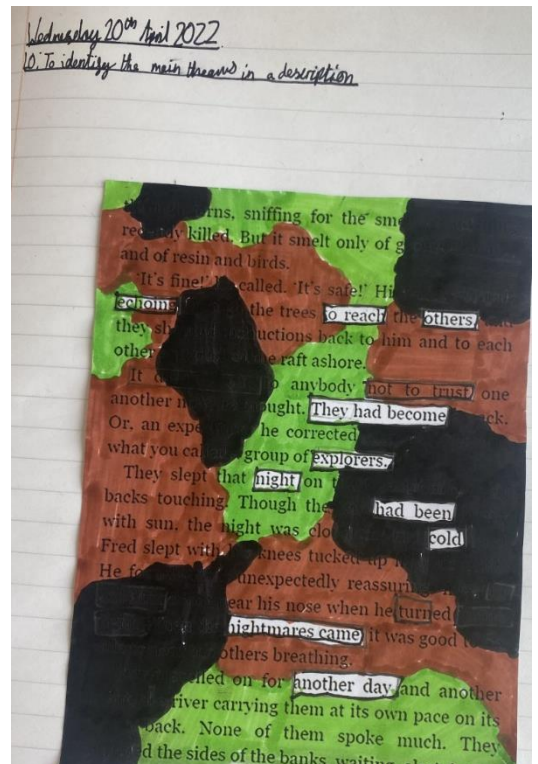 Wednesday 20th April 2022
LO: To identify the main theams in a description
rns, sniffing for the
killed. But it smelt only of
and of resin and birds.
'It's fine!' called. 'It's safe!'
echoing the trees to reach the others,
they ctions back to him and to each
other the raft ashore.
It anybody not to trust one
another ought. They had become
Or, an he corrected
what you group of explorers.
They slept that night on
backs touching. Though the had been
with sun, the night was cold
Fred slept with knees tucked up
He unexpectedly reassuring
ear his nose when he turned
nightmares came it was good
others breathing.
on for another day and another
river carrying them at its own pace on its
back. None of them spoke much. They
the sides of the banks, waiting